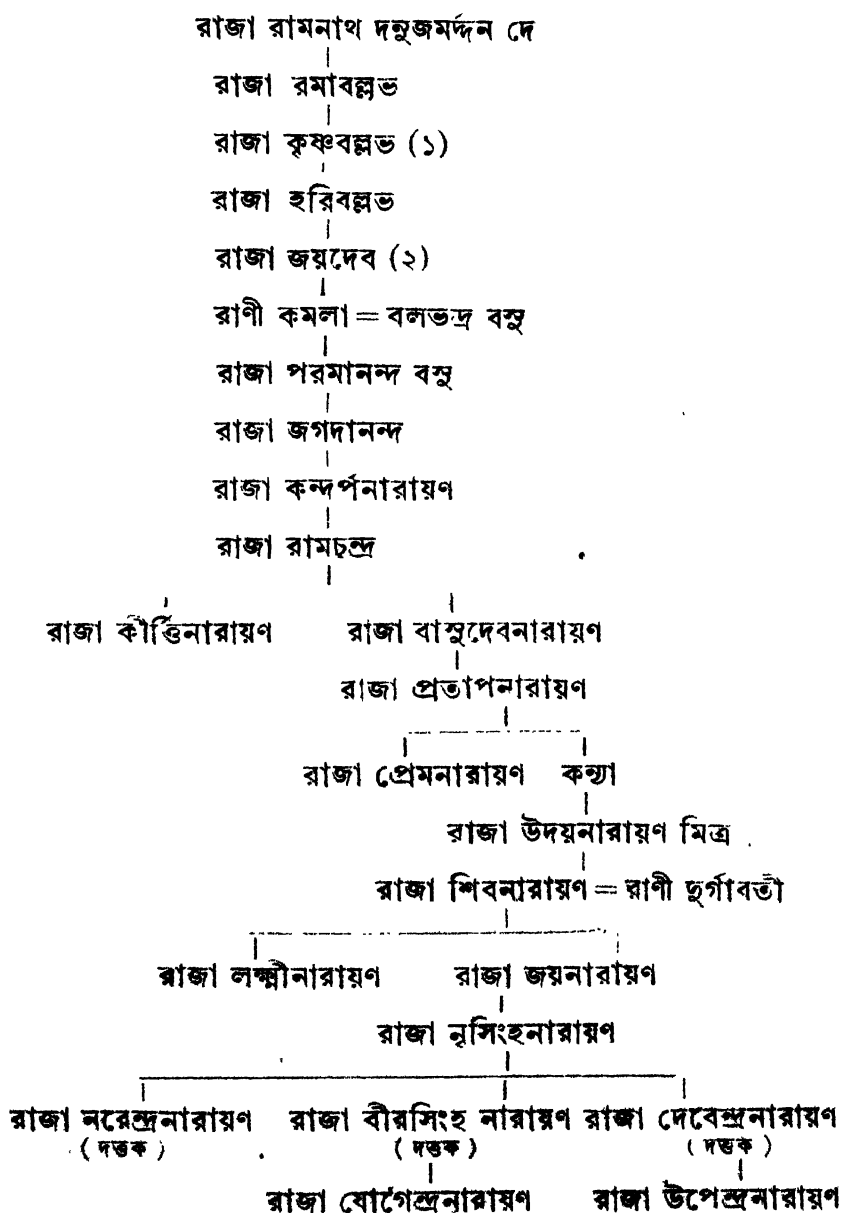 রাজা রামনাথ দনুজমর্দ্দন দে
রাজা রমাবল্লভ
রাজা কৃষ্ণবল্লভ (১)
রাজা হরিবল্লভ
রাজা জয়দেব (২)
রাণী কমলা = বলভদ্র বসু
রাজা পরমানন্দ বসু
রাজা জগদানন্দ
রাজা কন্দর্পনারায়ণ
রাজা রামচন্দ্র
রাজা কীর্ত্তিনারায়ণ রাজা বাসুদেবনারায়ণ
রাজা প্রতাপনারায়ণ
রাজা প্রেমনারায়ণ কন্যা
রাজা উদয়নারায়ণ মিত্র
রাজা শিবনারায়ণ = রাণী দুর্গাবতী
রাজা লক্ষ্মীনারায়ণ রাজা জয়নারায়ণ
রাজা নৃসিংহনারায়ণ
রাজা নরেন্দ্রনারায়ণ রাজা বীরসিংহ নারায়ণ রাজা দেবেন্দ্রনারায়ণ
(দত্তক) (দত্তক) (দত্তক)
রাজা যোগেন্দ্রনারায়ণ রাজা উপেন্দ্রনারায়ণ